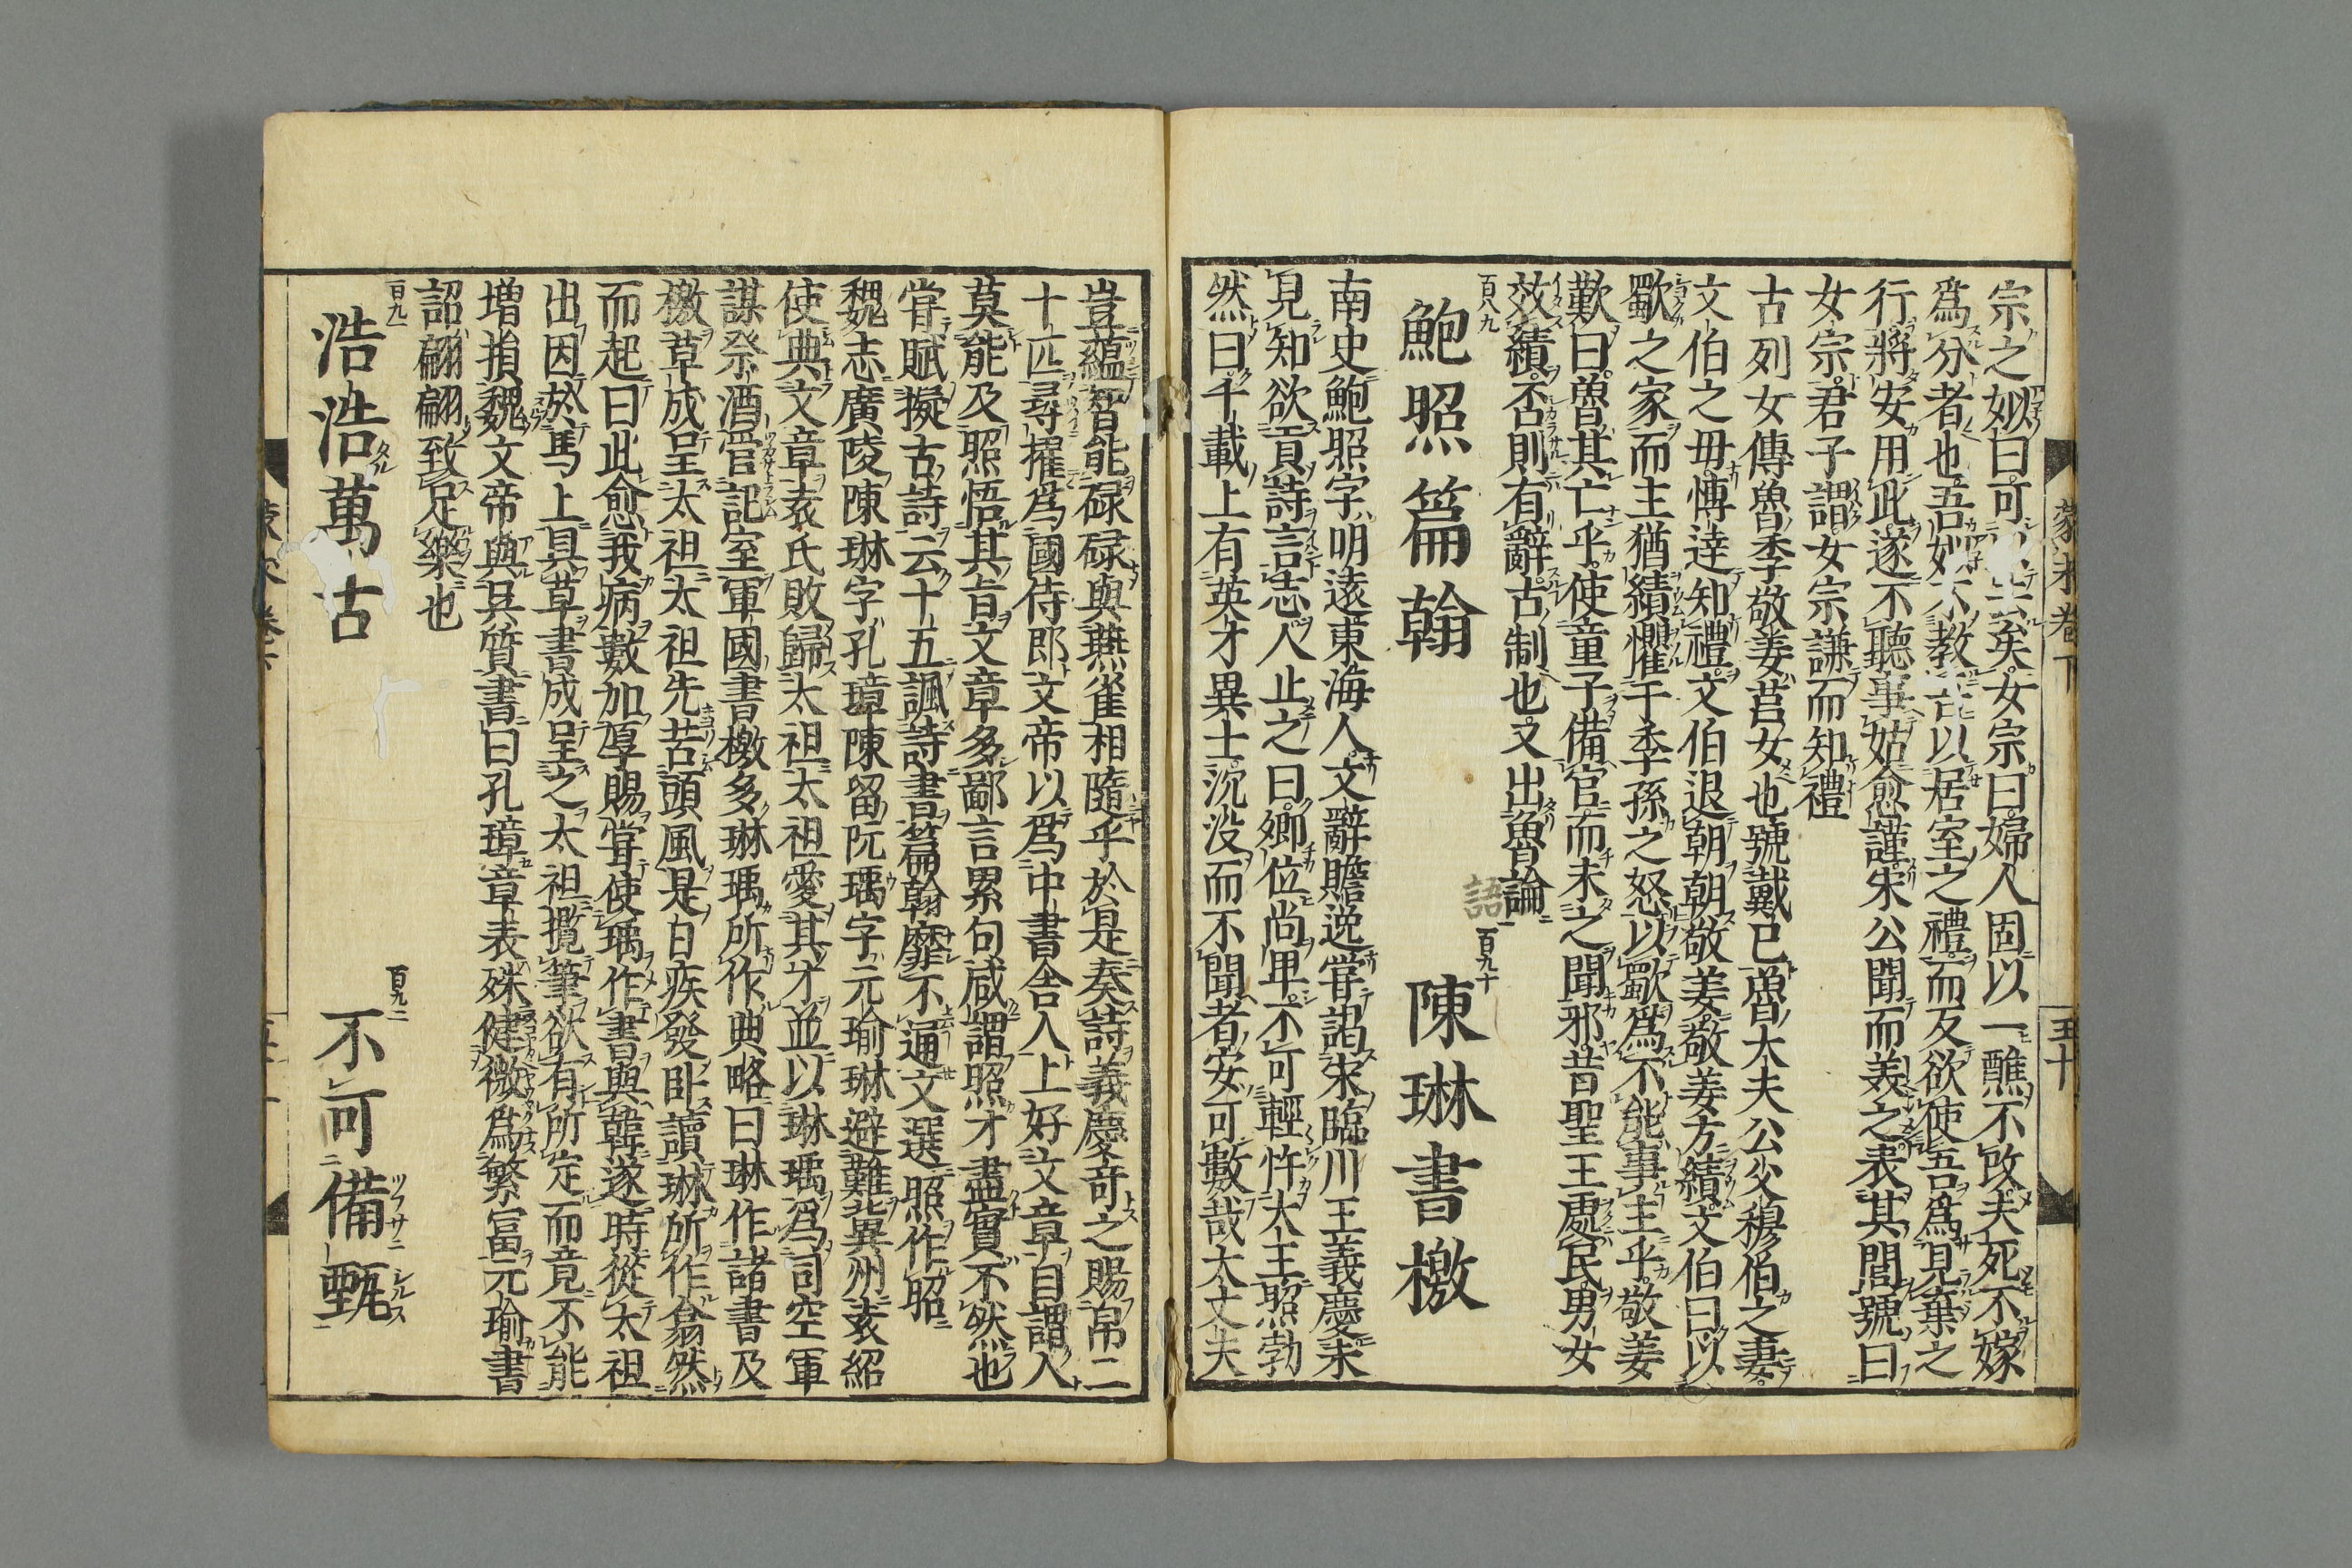 宗之姒曰可以去矣女宗曰婦人固以一醮不改夫死不嫁
爲分者也吾姒不教吾以居室之禮而反欲使吾爲見棄之
行將安用此遂不聽事姑愈謹宋公聞而美之表其閭號曰
女宗君子謂女宗謙而知禮
古列女傳魯季敬姜莒女也號戴已魯大夫公父穆伯之妻
文伯之毋愽達知禮文伯退朝朝敬姜敬姜方績文伯曰以
歜之家而主猶績懼干季孫之怒以歜爲不能事主乎敬姜
歎曰魯其亡乎使童子備官而未之聞邪昔聖王處民男女
效績否則有辟古制也又出魯論
語
百八九
鮑照篇翰
百九十
陳琳書檄
南史鮑照字明遠東海人文辭贍逸甞謁宋臨川王義慶未
見知欲貢詩言志人止之曰卿位尚卑不可輕忤大王照勃
然曰千載上有英才異士沉没而不聞者安可數哉大丈夫
蒙求卷下
五十
豈蘊智能碌碌與燕雀相隨乎於是奏詩義慶竒之賜帛二
十匹尋擢爲國侍郎文帝以爲中書舎人上好文章自謂人
莫能及照悟其旨文章多鄙言累句咸謂照才盡實不然也
甞賦擬古詩云十五諷詩書篇翰靡不通文選照作昭
魏志廣陵陳琳字孔璋陳留阮瑀字元瑜琳避難冀州袁紹
使典文章袁氏敗歸太祖太祖愛其才並以琳瑀爲司空軍
謀祭酒管記室軍國書檄多琳瑀所作典略曰琳作諸書及
檄草成呈太祖太祖先苦頭風是日疾發卧讀琳所作翕然
而起曰此愈我病數加厚賜甞使瑀作書與韓遂時從太祖
出因於馬上具草書成呈之太祖攬筆欲有所定而竟不能
増損魏文帝與吴質書曰孔璋章表殊健微爲繁富元瑜書
詔翩翩致足樂也
百九一
浩浩萬古
百九二
不可備甄